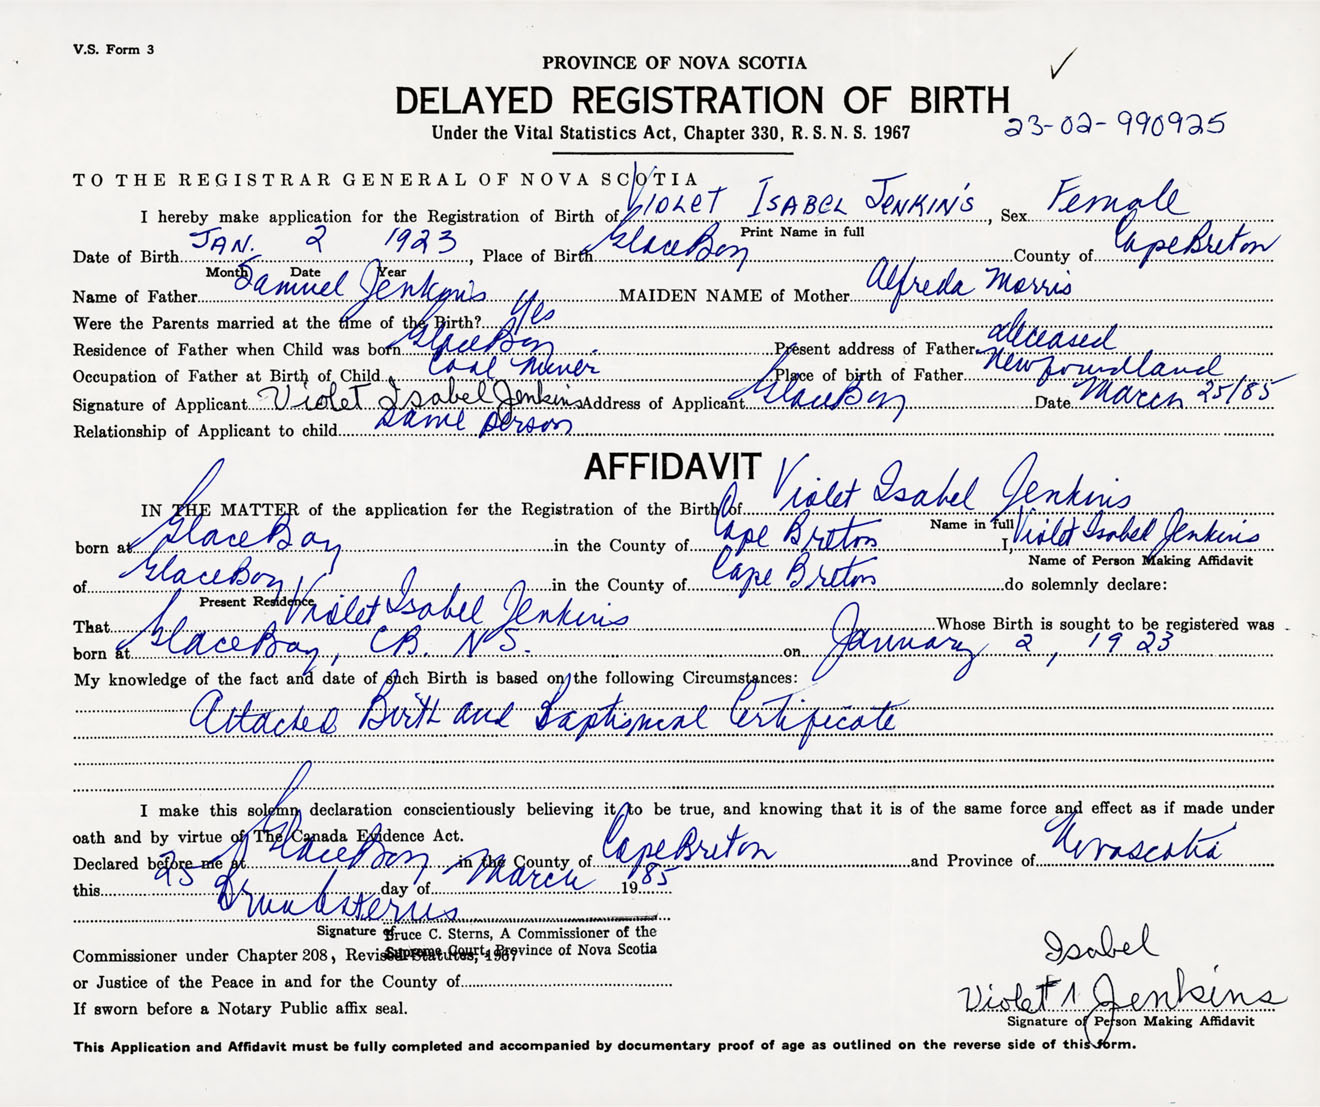 V.S. Form 3
PROVINCE OF NOVA SCOTIA
DELAYED REGISTRATION OF BIRTH
23-02-990925
Under the Vital Statistics Act, Chapter 330, R. S. N. S. 1967
TO THE REGISTRAR GENERAL OF NOVA SCOTIA
I hereby make application for the Registration of Birth of VIOLET ISABEL JENKIN'S, Sex Female
Print Name in full
Date of Birth JAN. 2 1923, Place of Birth Glace Bay County of Cape Breton
Month Date Year
Name of Father Samuel Jenkins MAIDEN NAME of Mother Alfreda Morris
Were the Parents married at the time of the Birth? Yes
Residence of Father when Child was born Glace Bay Present address of Father deceased
Occupation of Father at Birth of Child Coal Miner Place of birth of Father Newfoundland
Signature of Applicant Violet Isabel Jenkins Address of Applicant Glace Bay Date March 25/85
Relationship of Applicant to child Same person
AFFIDAVIT
IN THE MATTER of the application for the Registration of the Birth of Violet Isabel Jenkins
Name in full
born at Glace Bay in the County of Cape Breton I, Violet Isabel Jenkins
Name of Person Making Affidavit
of Glace Bay in the County of Cape Breton do solemnly declare:
Present Residence
That Violet Isabel Jenkins Whose Birth is sought to be registered was
born at Glace Bay, CB. NS. on January 2, 1923
My knowledge of the fact and date of such Birth is based on the following Circumstances:
Attached Birth and Baptismal Certificate
I make this solemn declaration conscientiously believing it to be true, and knowing that it is of the same force and effect as if made under
oath and by virtue of The Canada Evidence Act.
Declared before me at Glace Bay in the County of Cape Breton and Province of Nova Scotia
this 25 day of March 1985
Signature of
Bruce C. Sterns, A Commissioner of the
Supreme Court, Province of Nova Scotia
Commissioner under Chapter 208, Revised Statutes, 1967
or Justice of the Peace in and for the County of
If sworn before a Notary Public affix seal.
Isabel
Violet 1 Jenkins
Signature of Person Making Affidavit
This Application and Affidavit must be fully completed and accompanied by documentary proof of age as outlined on the reverse side of this form.